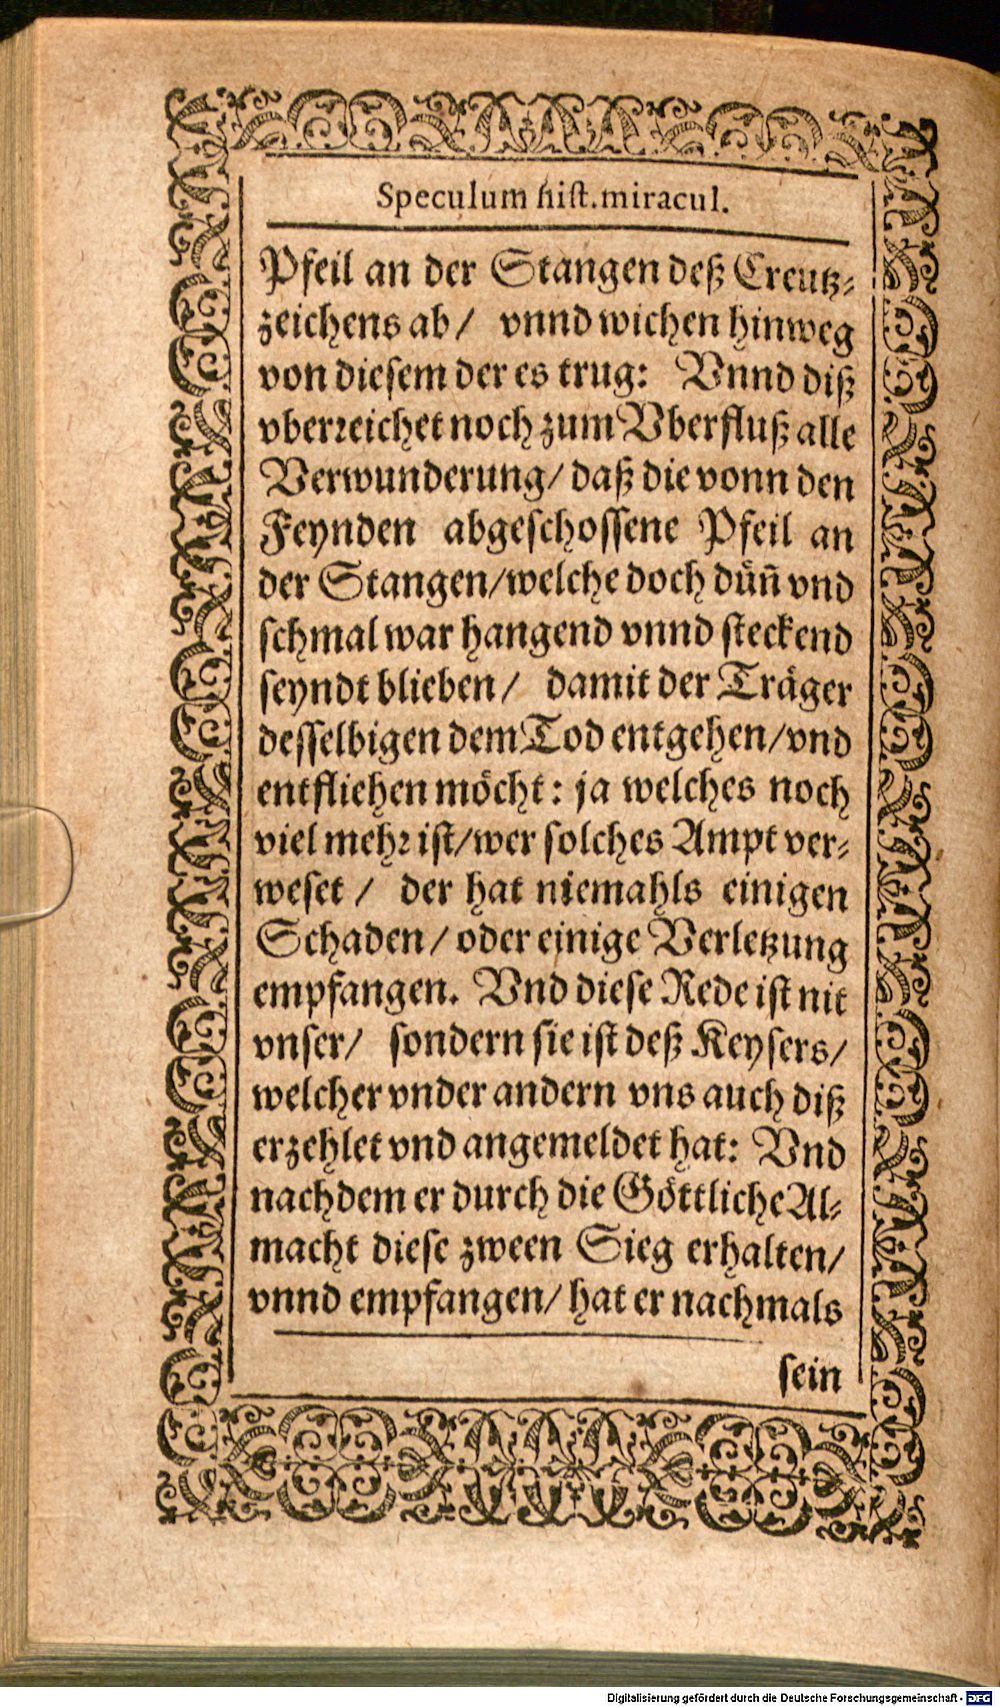 Speculum hist. miracul.
Pfeil an der Stangen deß Creutz-
zeichens ab/ vnnd wichen hinweg
von diesem der es trug: Vnnd diß
vberreichet noch zum Vberfluß alle
Verwunderung/ daß die vonn den
Feynden abgeschossene Pfeil an
der Stangen/welche doch dün̄ vnd
schmal war hangend vnnd steckend
seyndt blieben/ damit der Träger
desselbigen dem Tod entgehen/vnd
entfliehen möcht: ja welches noch
viel mehr ist/wer solches Ampt ver-
weset / der hat niemahls einigen
Schaden/ oder einige Verletzung
empfangen. Vnd diese Rede ist nit
vnser/ sondern sie ist deß Keysers/
welcher vnder andern vns auch diß
erzehlet vnd angemeldet hat: Vnd
nachdem er durch die Göttliche Al-
macht diese zween Sieg erhalten/
vnnd empfangen/ hat er nachmals
sein
Digitalisierung gefördert durch die Deutsche Forschungsgemeinschaft - DFG